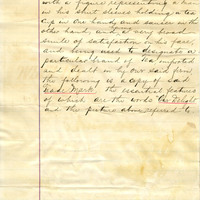 with a figure representing a man
in his shirt sleeves holding a
cup in one hand and saucer in the
other hand, and a very broad
having
smile of satisfaction on his face,
and being used to designate a
particular brand of Tea imported
and dealt in by our said firm
the following is a copy of said
Trade Mark the essential features
of which are the words "Our Delight"
and the picture above referred to